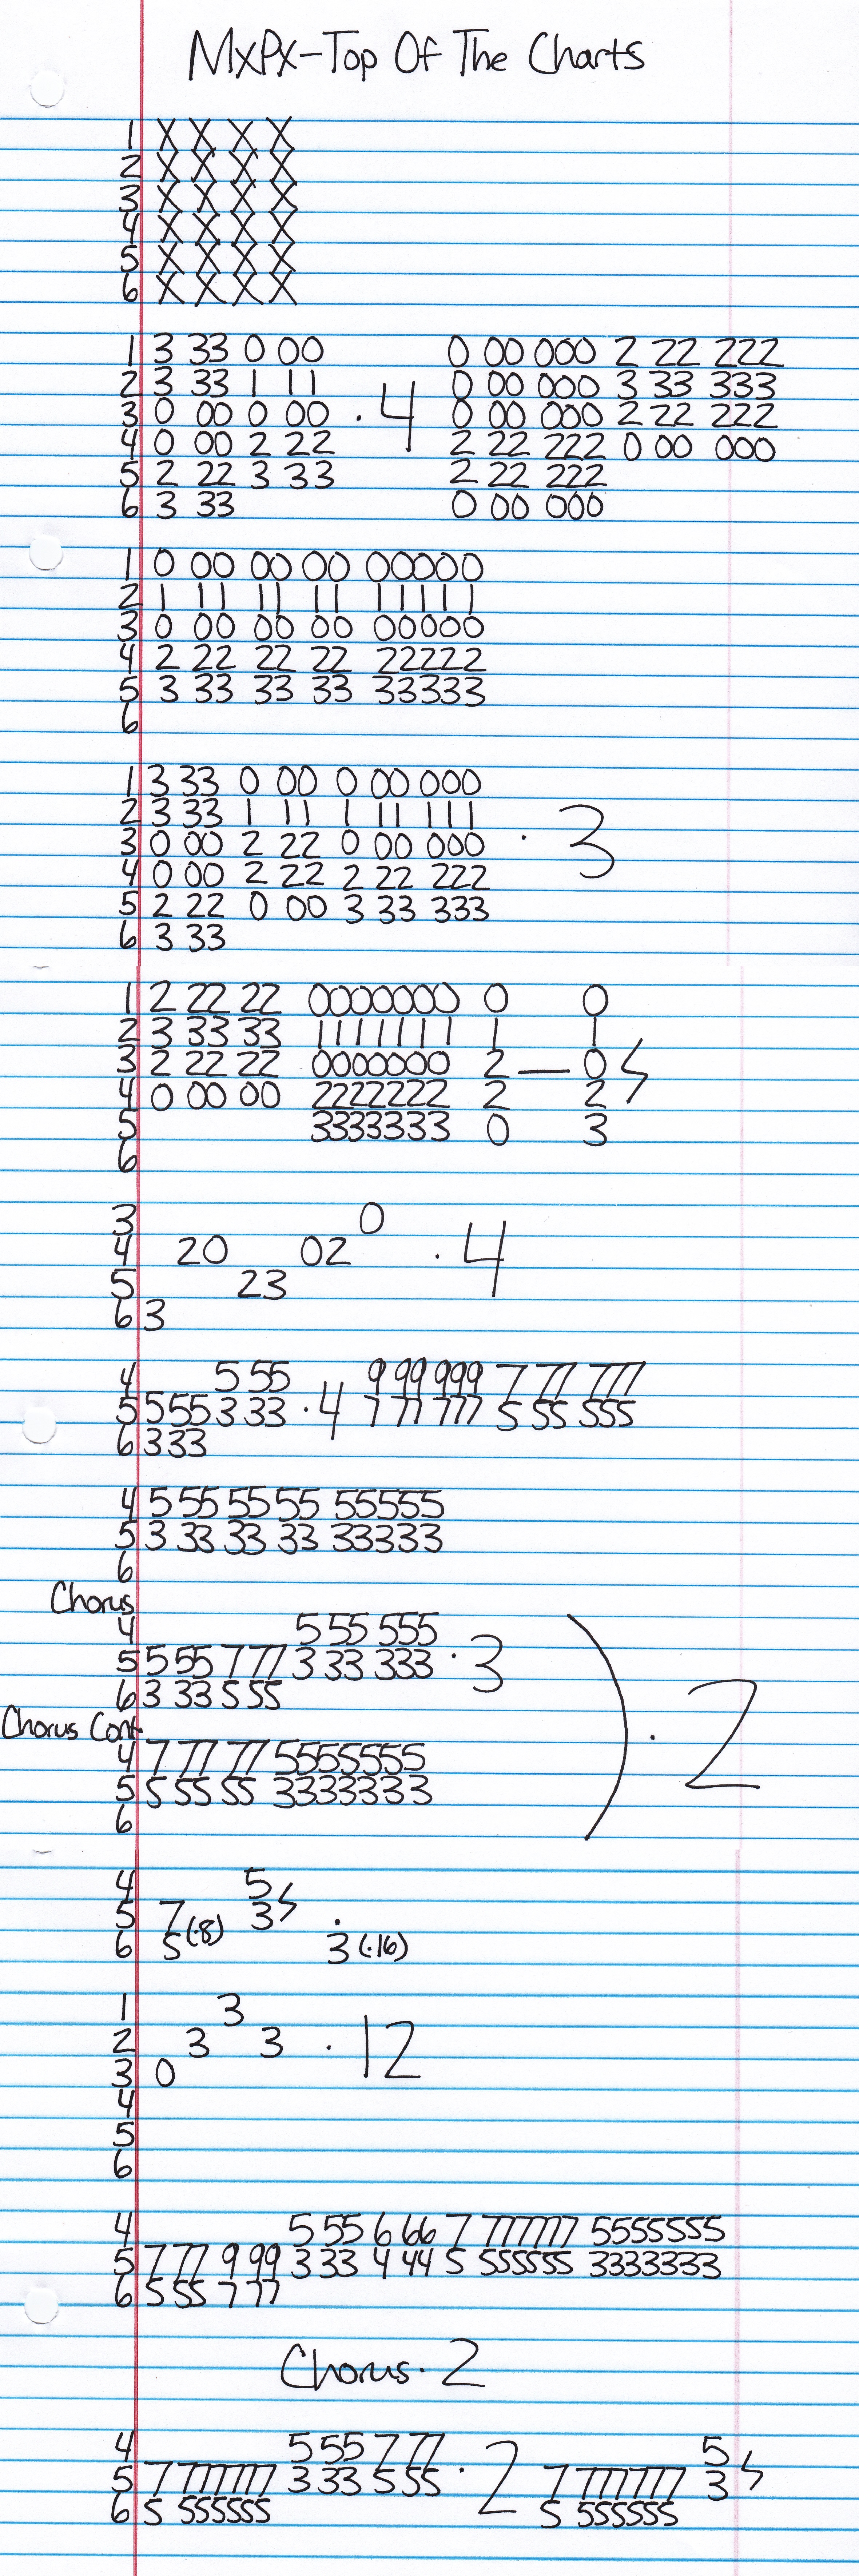 MxPx-Top Of The Charts
1 X X X X
2 X X X X
3 X X X X
4 X X X X
5 X X X X
6 X X X X
1 3 33 0 00 0 00 000 2 22 222
2 3 33 1 11 0 00 000 3 33 333
3 0 00 0 00 · 4 0 00 000 2 22 222
4 0 00 2 22 2 22 222 0 00 000
5 2 22 3 33 2 22 222
6 3 33 0 00 000
1 0 00 00 00 00000
2 1 11 11 11 11111
3 0 00 00 00 00000
4 2 22 22 22 22222
5 3 33 33 33 33333
6
1 3 33 0 00 0 00 000
2 3 33 1 11 1 11 111
3 0 00 2 22 0 00 000 · 3
4 0 00 2 22 2 22 222
5 2 22 0 00 3 33 333
6 3 33
1 2 22 22 0000000 0 0
2 3 33 33 1111111 1 1
3 2 22 22 0000000 2 — 0
4 0 00 00 2222222 2 2
5 3333333 0 3
6
3 0
4 20 02 · 4
5 23
6 3
4 5 55 9 99 999 7 77 777
5 5 55 3 33 · 4 7 77 777 5 55 555
6 333
4 5 55 55 55 55555
5 3 33 33 33 33333
6
Chorus
4 5 55 555
5 5 55 7 77 3 33 333 · 3
6 3 33 5 55
) · 2
Chorus Cont
4 7 77 77 5555555
5 5 55 55 3333333
6
4 5
5 7 3 ·
6 5(·8) 3(·16)
1 3
2 3 3 · 12
3 0
4
5
6
4 5 55 6 66 7 777777 5555555
5 7 77 9 99 3 33 4 44 5 555555 3333333
6 5 55 7 77
Chorus · 2
4 5 55 7 77 5
5 7 777777 3 33 5 55 · 2 7 777777 3
6 5 555555 5 555555